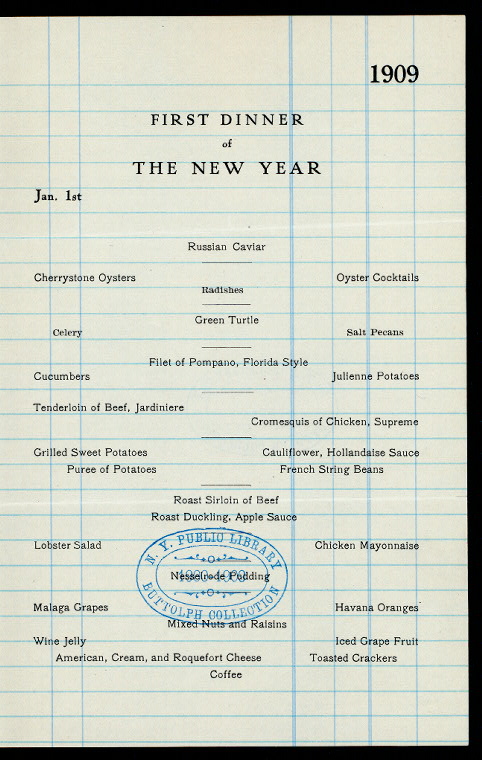 1909
FIRST DINNER
of
THE NEW YEAR
Jan. 1st
Russian Caviar
Cherrystone Oysters Oyster Cocktails
Radishes
Green Turtle
Celery Salt Pecans
Filet of Pompano, Florida Style
Cucumbers Julienne Potatoes
Tenderloin of Beef, Jardiniere
Cromesquis of Chicken, Supreme
Grilled Sweet Potatoes Cauliflower, Hollandaise Sauce
Puree of Potatoes French String Beans
Roast Sirloin of Beef
Roast Duckling, Apple Sauce
N. Y. PUBLIC LIBRARY
Lobster Salad Chicken Mayonnaise
Nesselrode Pudding
BUTTOLPH COLLECTION
Malaga Grapes Havana Oranges
Mixed Nuts and Raisins
Wine Jelly Iced Grape Fruit
American, Cream, and Roquefort Cheese Toasted Crackers
Coffee